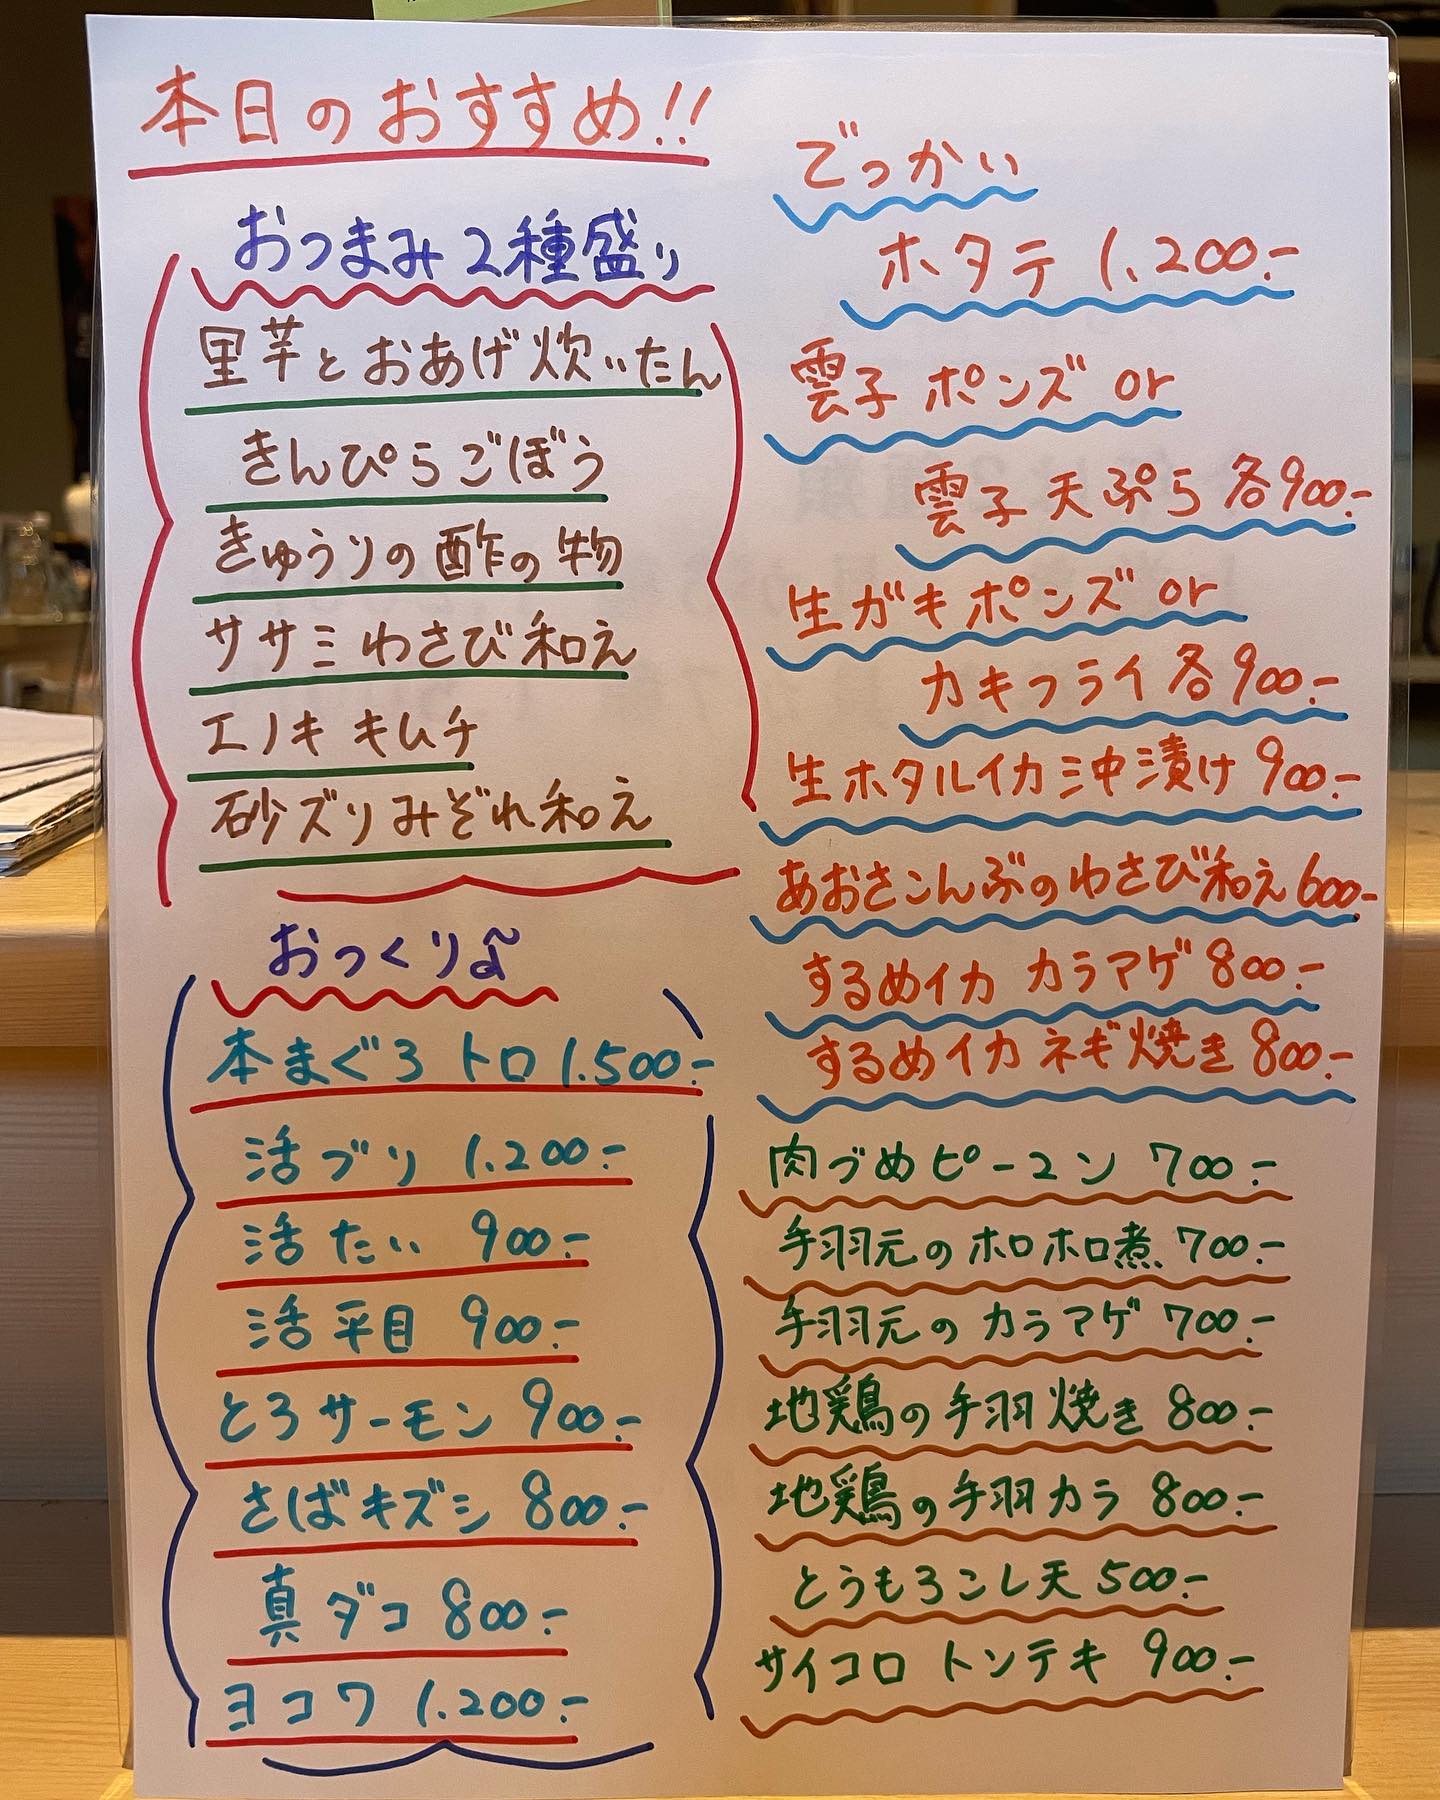 本日のおすすめ!!
おつまみ2種盛り
里芋とおあげ炊いたん
きんぴらごぼう
きゅうりの酢の物
ササミわさび和え
エノキキムチ
砂ズリみぞれ和え
おっくり
本まぐろ トロ 1.500.-
活ブリ 1.200.-
活たい 900.-
活平目 900.-
とろサーモン 900.-
さばキズシ 800.-
真ダコ 800.-
ヨコワ 1.200.-
でっかい
ホタテ 1.200.-
雲子 ポンズ or
雲子 天ぷら 各900.-
生ガキポンズ or
カキフライ 各900.-
生ホタルイカ沖漬け 900.-
あおさこんぶのわさび和え 600.-
するめイカ カラアゲ 800.-
するめイカ ネギ焼き 800.-
肉づめピーマン 700.-
手羽元のホロホロ煮 700.-
手羽元のカラアゲ 700.-
地鶏の手羽焼き 800.-
地鶏の手羽カラ 800.-
とうもろこし天 500.-
サイコロ トンテキ 900.-